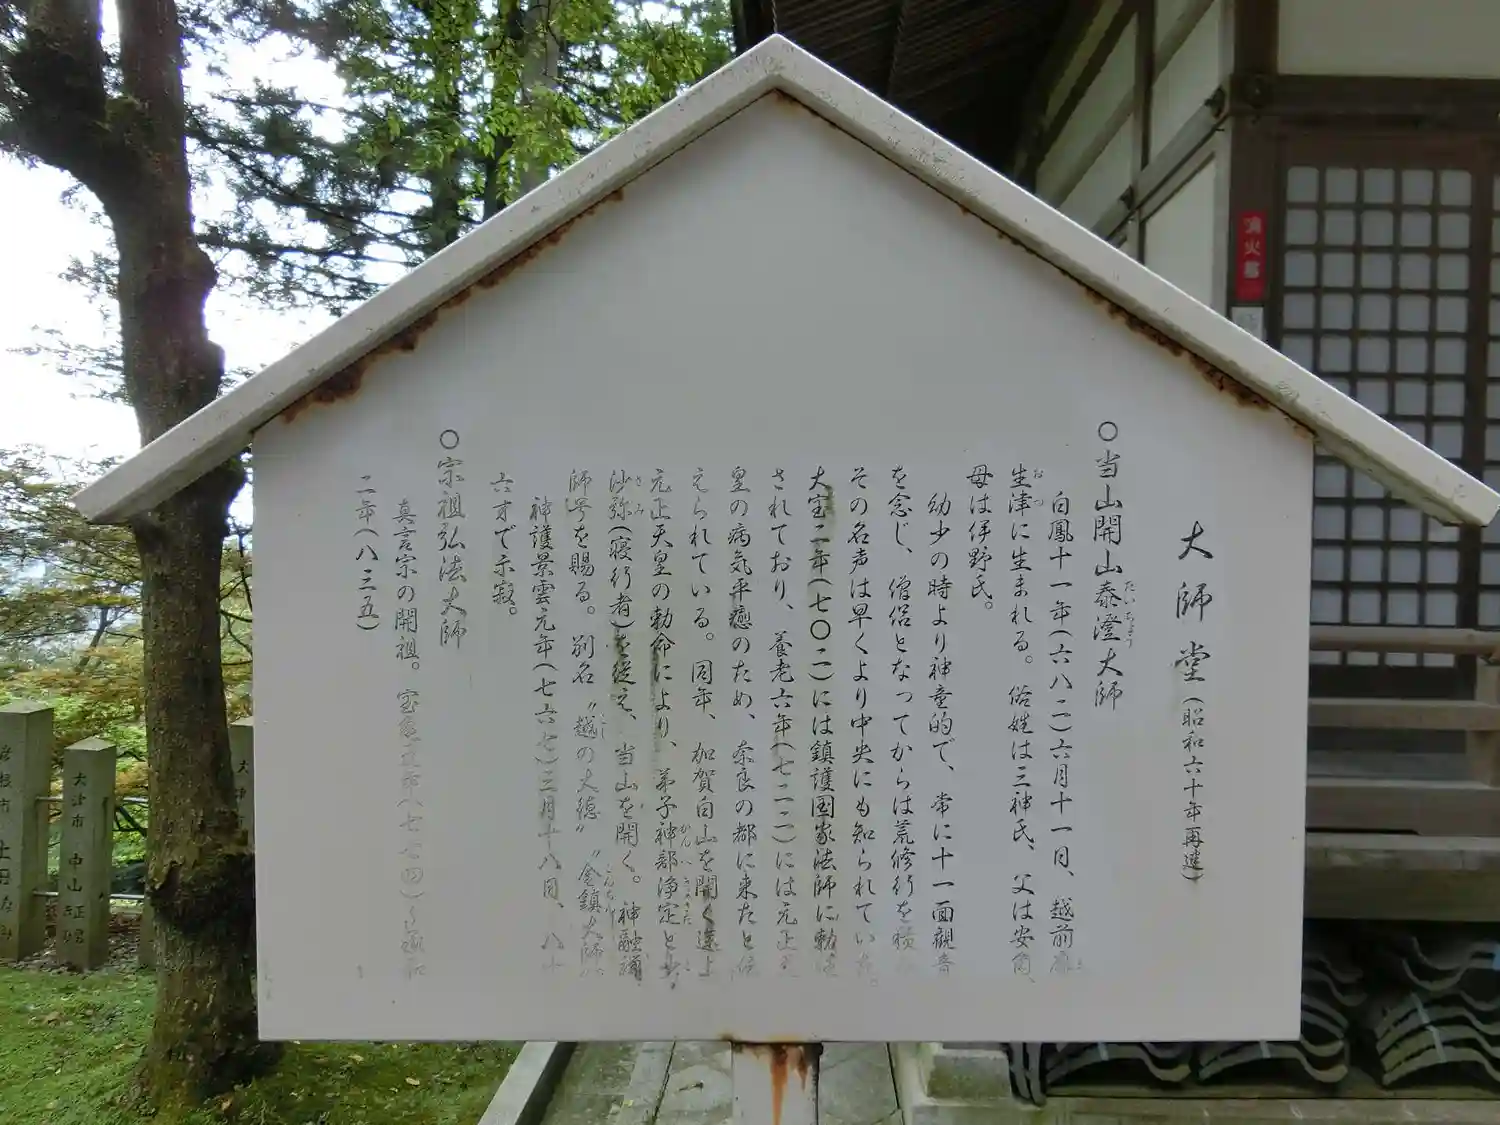 大師堂(昭和六十年再建)
○当山開山泰澄大師
たいちょう
白鳳十一年(六八二)六月十一日、越前
生津に生まれる。俗姓は三神氏、父は安角、
おつ
母は伊野氏。
幼少の時より神童的で、常に十一面観音
を念じ、僧侶となってからは荒修行を積
その名声は早くより中央にも知られていた。
大宝二年(七〇二)には鎮護国家法師に勅
されており、養老六年(七二二)には元正天
皇の病気平癒のため、奈良の都に来たと伝
えられている。同年、加賀白山を開く途上
元正天皇の勅命により、弟子神部浄定と
かんべ
沙弥(寝行者)を従え、当山を開く。神融禅
さみ
師号を賜る。別名〝越の大徳〟〝金鎮大師〟。
こし
神護景雲元年(七六七)三月十八日、八十
六才で示寂。
○宗祖弘法大師
真言宗の開祖。宝亀五年(七七四)~承和
二年(八三五)
消火器
大津市 中山